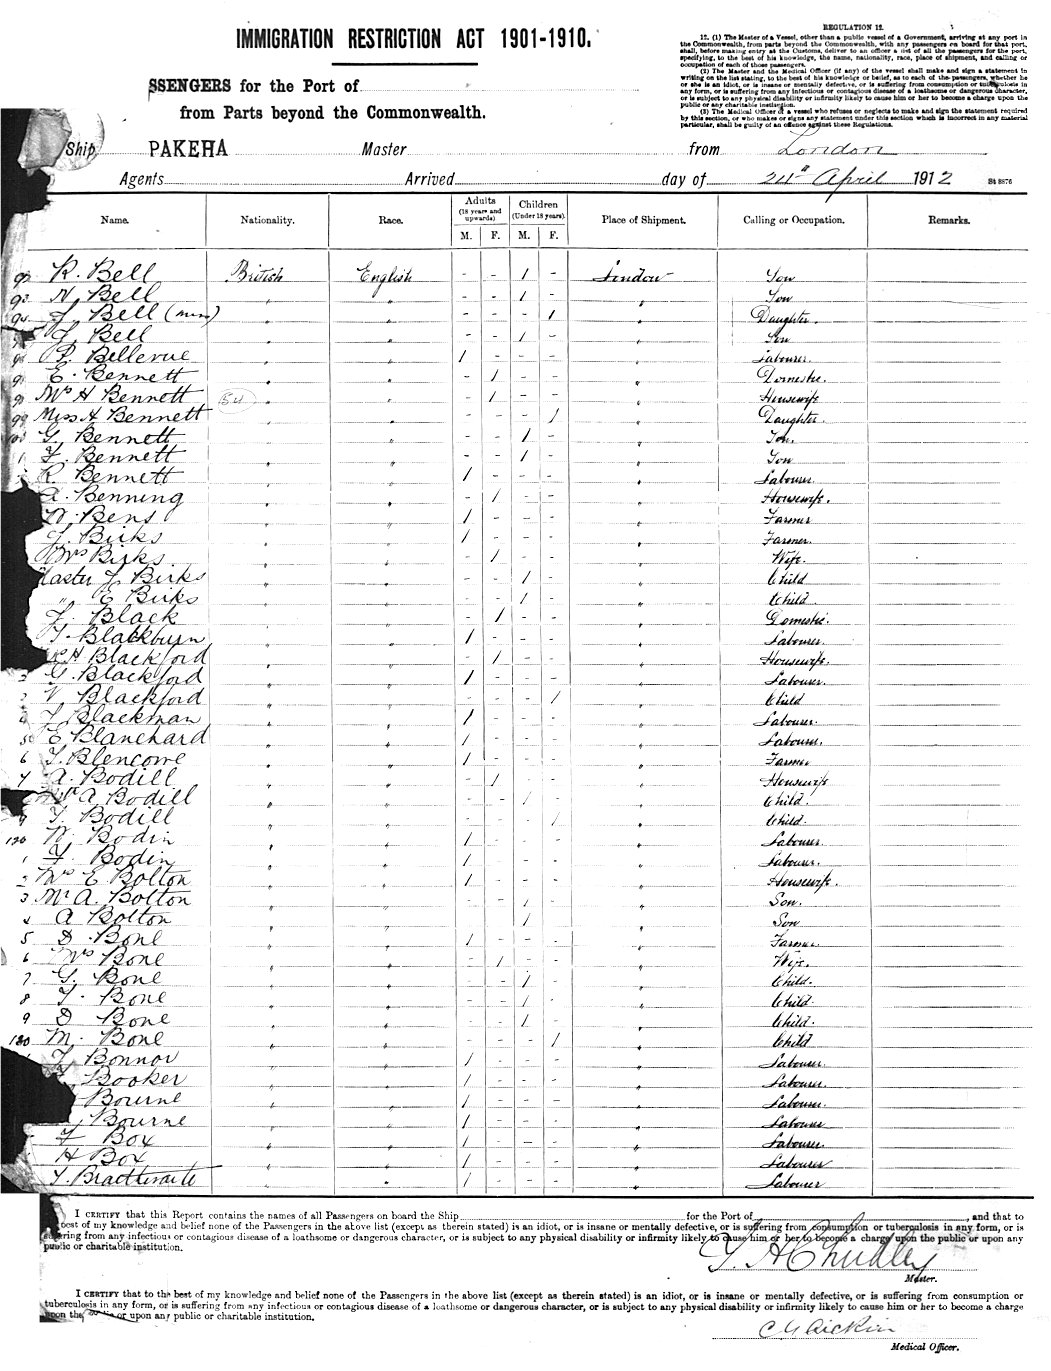 IMMIGRATION RESTRICTION ACT 1901-1910.
SSENGERS for the Port of
from Parts beyond the Commonwealth.
REGULATION 12.
12. (1) The Master of a Vessel, other than a public vessel of a Government, arriving at any port in
the Commonwealth, from parts beyond the Commonwealth, with any passengers on board for that port,
shall, before making entry at the Customs, deliver to an officer a list of all the passengers for the port,
specifying, to the best of his knowledge, the name, nationality, race, place of shipment, and calling or
occupation of each of those passengers.
(2) The Master and the Medical Officer (if any) of the vessel shall make and sign a statement in
writing on the list stating, to the best of his knowledge or belief, as to each of the passengers, whether he
or she is an idiot, or is insane or mentally defective, or is suffering from consumption or tuberculosis in
any form, or is suffering from any infectious or contagious disease of a loathsome or dangerous character,
or is subject to any physical disability or infirmity likely to cause him or her to become a charge upon the
public or any public or charitable institution.
(3) The Medical Officer of a vessel who refuses or neglects to make and sign the statement required
by this section, or who makes or signs any statement under this section which is incorrect in any material
particular, shall be guilty of an offence against these Regulations.
Ship PAKEHA Master from London
Agents Arrived day of 24th April 1912
Name. Nationality. Race. Adults (18 years and upwards) Children (Under 18 years). Place of Shipment. Calling or Occupation. Remarks.
M. F. M. F.
R. Bell British English - - / - London Son
N. Bell " " - - / - " Son
Bell (Miss) " " - - - / " Daughter.
G. Bell - - / - Son
Bellevue " " / - - - " Labourer.
E. Bennett " " - / - - " Domestic.
98 Mrs H Bennett (54) " " - / - - " Housewife
99 Miss A Bennett " - - - / " Daughter.
G. Bennett " " - - / - " Son.
F. Bennett " " - - / - " Son
R. Bennett " " / - - - " Labourer.
A. Benning " " - / - - " Housewife.
W. Bens " " / - - - " Farmer
J. Birks " " / - - - " Farmer.
Mrs Birks " " - / - - " Wife.
Master J. Birks " " - - / - " Child
" E Birks " " - - / - " Child
Black " " - / - - " Domestic.
Blackburn " " / - - - " Labourer.
H Blackford " " - / - - " Housewife.
G. Blackford " " / - - - " Labourer.
V. Blackford " " - - - / " Child
Blackman " " / - - - " Labourer.
5 E Blanchard " " / - - - " Labourer.
6 Blencowe " " / - - - " Farmer
7 A. Bodill " " - / - - " Housewife
A Bodill " " - - / - " Child.
9 Bodill " " - - - / " Child.
120 W. Bodin " " / - - - " Labourer
1 Bodin " " / - - - " Labourer.
2 Mrs E Bolton " " / - - - " Housewife.
3 Mr A. Bolton " " - - / - " Son.
4 A Bolton " " - - / - " Son
5 D. Bone " " / - - - " Farmer.
6 Mrs Bone " " - / - - " Wife.
7 G. Bone " " - - / - " Child.
8 Bone " " - - / - " Child.
9 D Bone " " - - / - " Child.
130 M. Bone " " - - - / " Child
Bonnor " " / - - - " Labourer
Booker " " / - - - " Labourer.
Bourne " " / - - - " Labourer.
Bourne " " / - - - " Labourer
F Box " " / - - - " Labourer.
H Box " " / - - - " Labourer
Braithwaite " " / - - - " Labourer
I CERTIFY that this Report contains the names of all Passengers on board the Ship for the Port of , and that to
best of my knowledge and belief none of the Passengers in the above list (except as therein stated) is an idiot, or is insane or mentally defective, or is suffering from consumption or tuberculosis in any form, or is
suffering from any infectious or contagious disease of a loathsome or dangerous character, or is subject to any physical disability or infirmity likely to cause him or her to become a charge upon the public or upon any
public or charitable institution.
Chudley
Master.
I CERTIFY that to the best of my knowledge and belief none of the Passengers in the above list (except as therein stated) is an idiot, or is insane or mentally defective, or is suffering from consumption or
tuberculosis in any form, or is suffering from any infectious or contagious disease of a loathsome or dangerous character, or is subject to any physical disability or infirmity likely to cause him or her to become a charge
upon the or upon any public or charitable institution.
Aickin
Medical Officer.